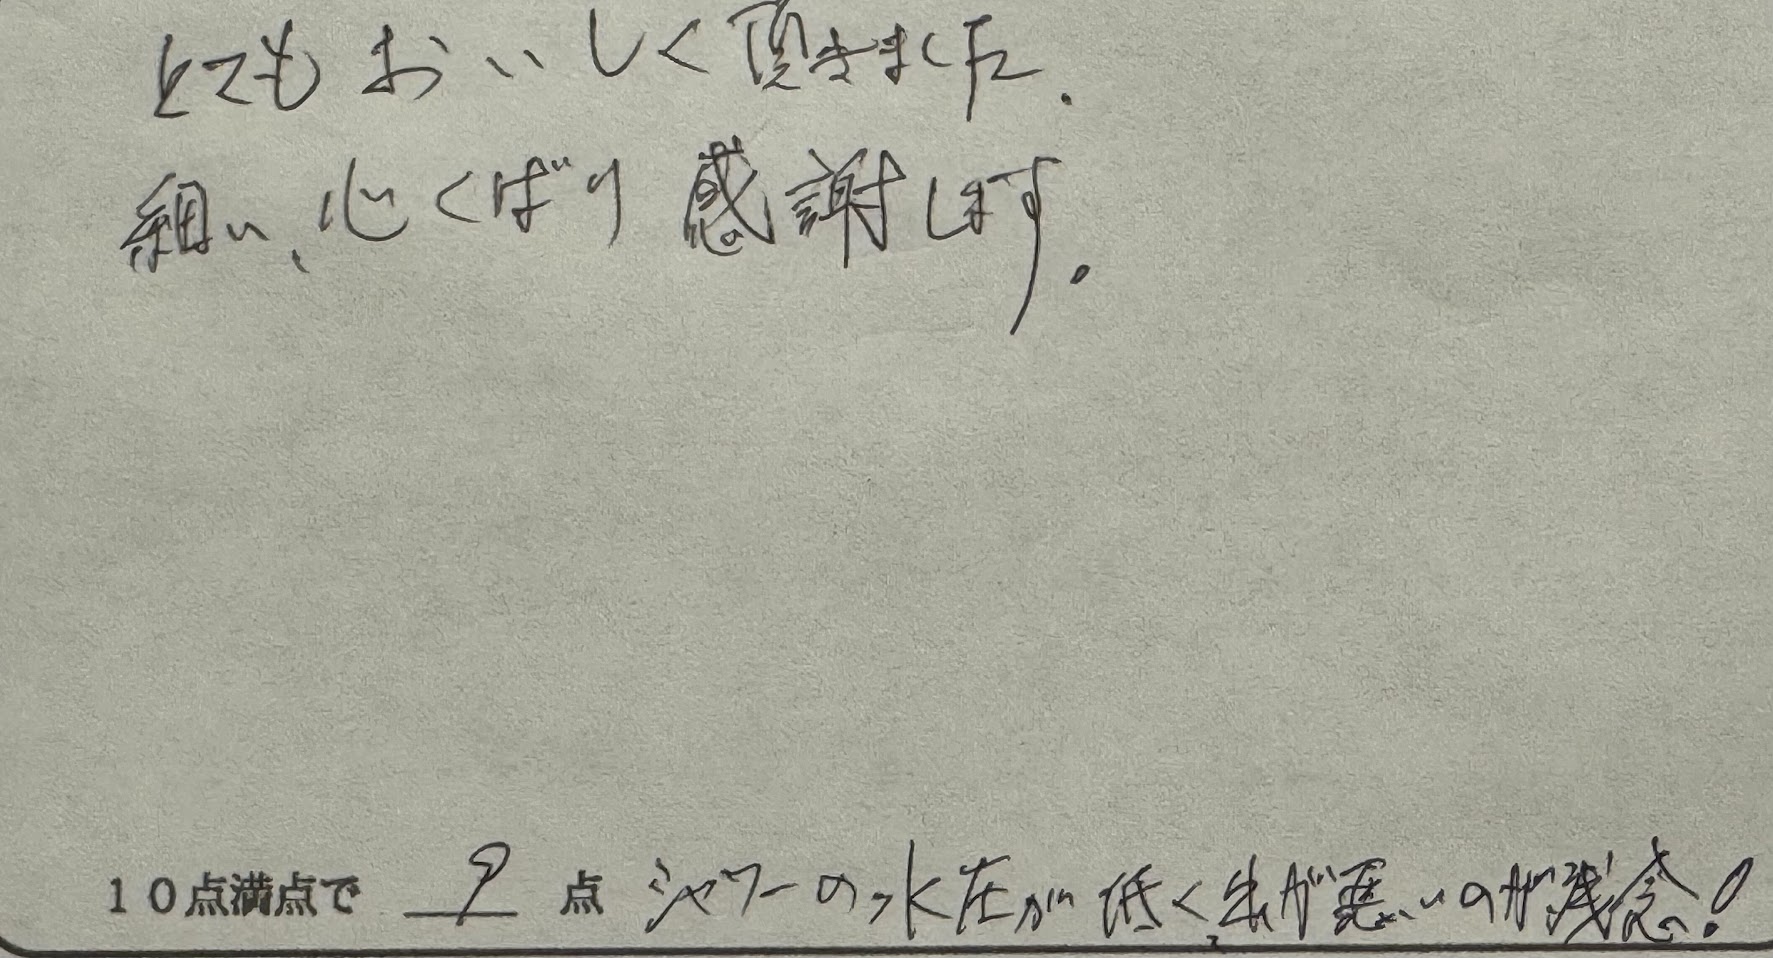 とてもおいしく頂きました.
細い、心くばり感謝します。
10点満点で 9 点 シャワーの水圧が低く、出が悪いのが残念!